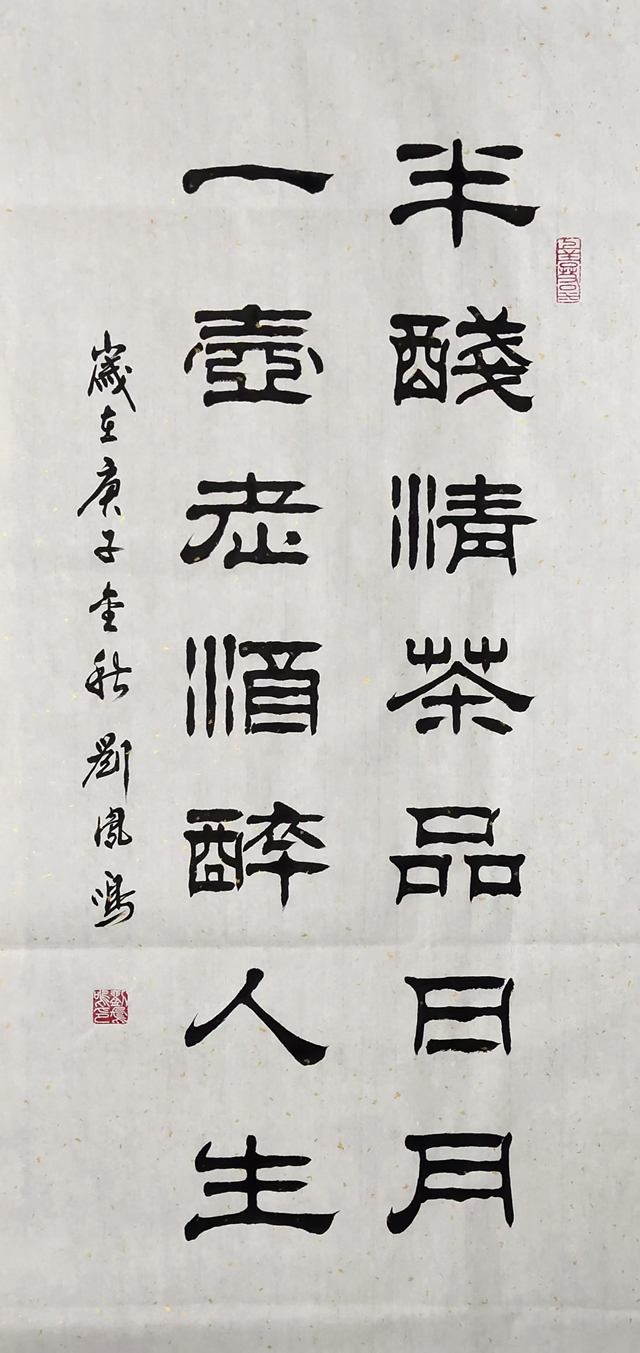 半醆清茶品日月
一壺老酒醉人生
歲在庚子金秋劉鳳鳴